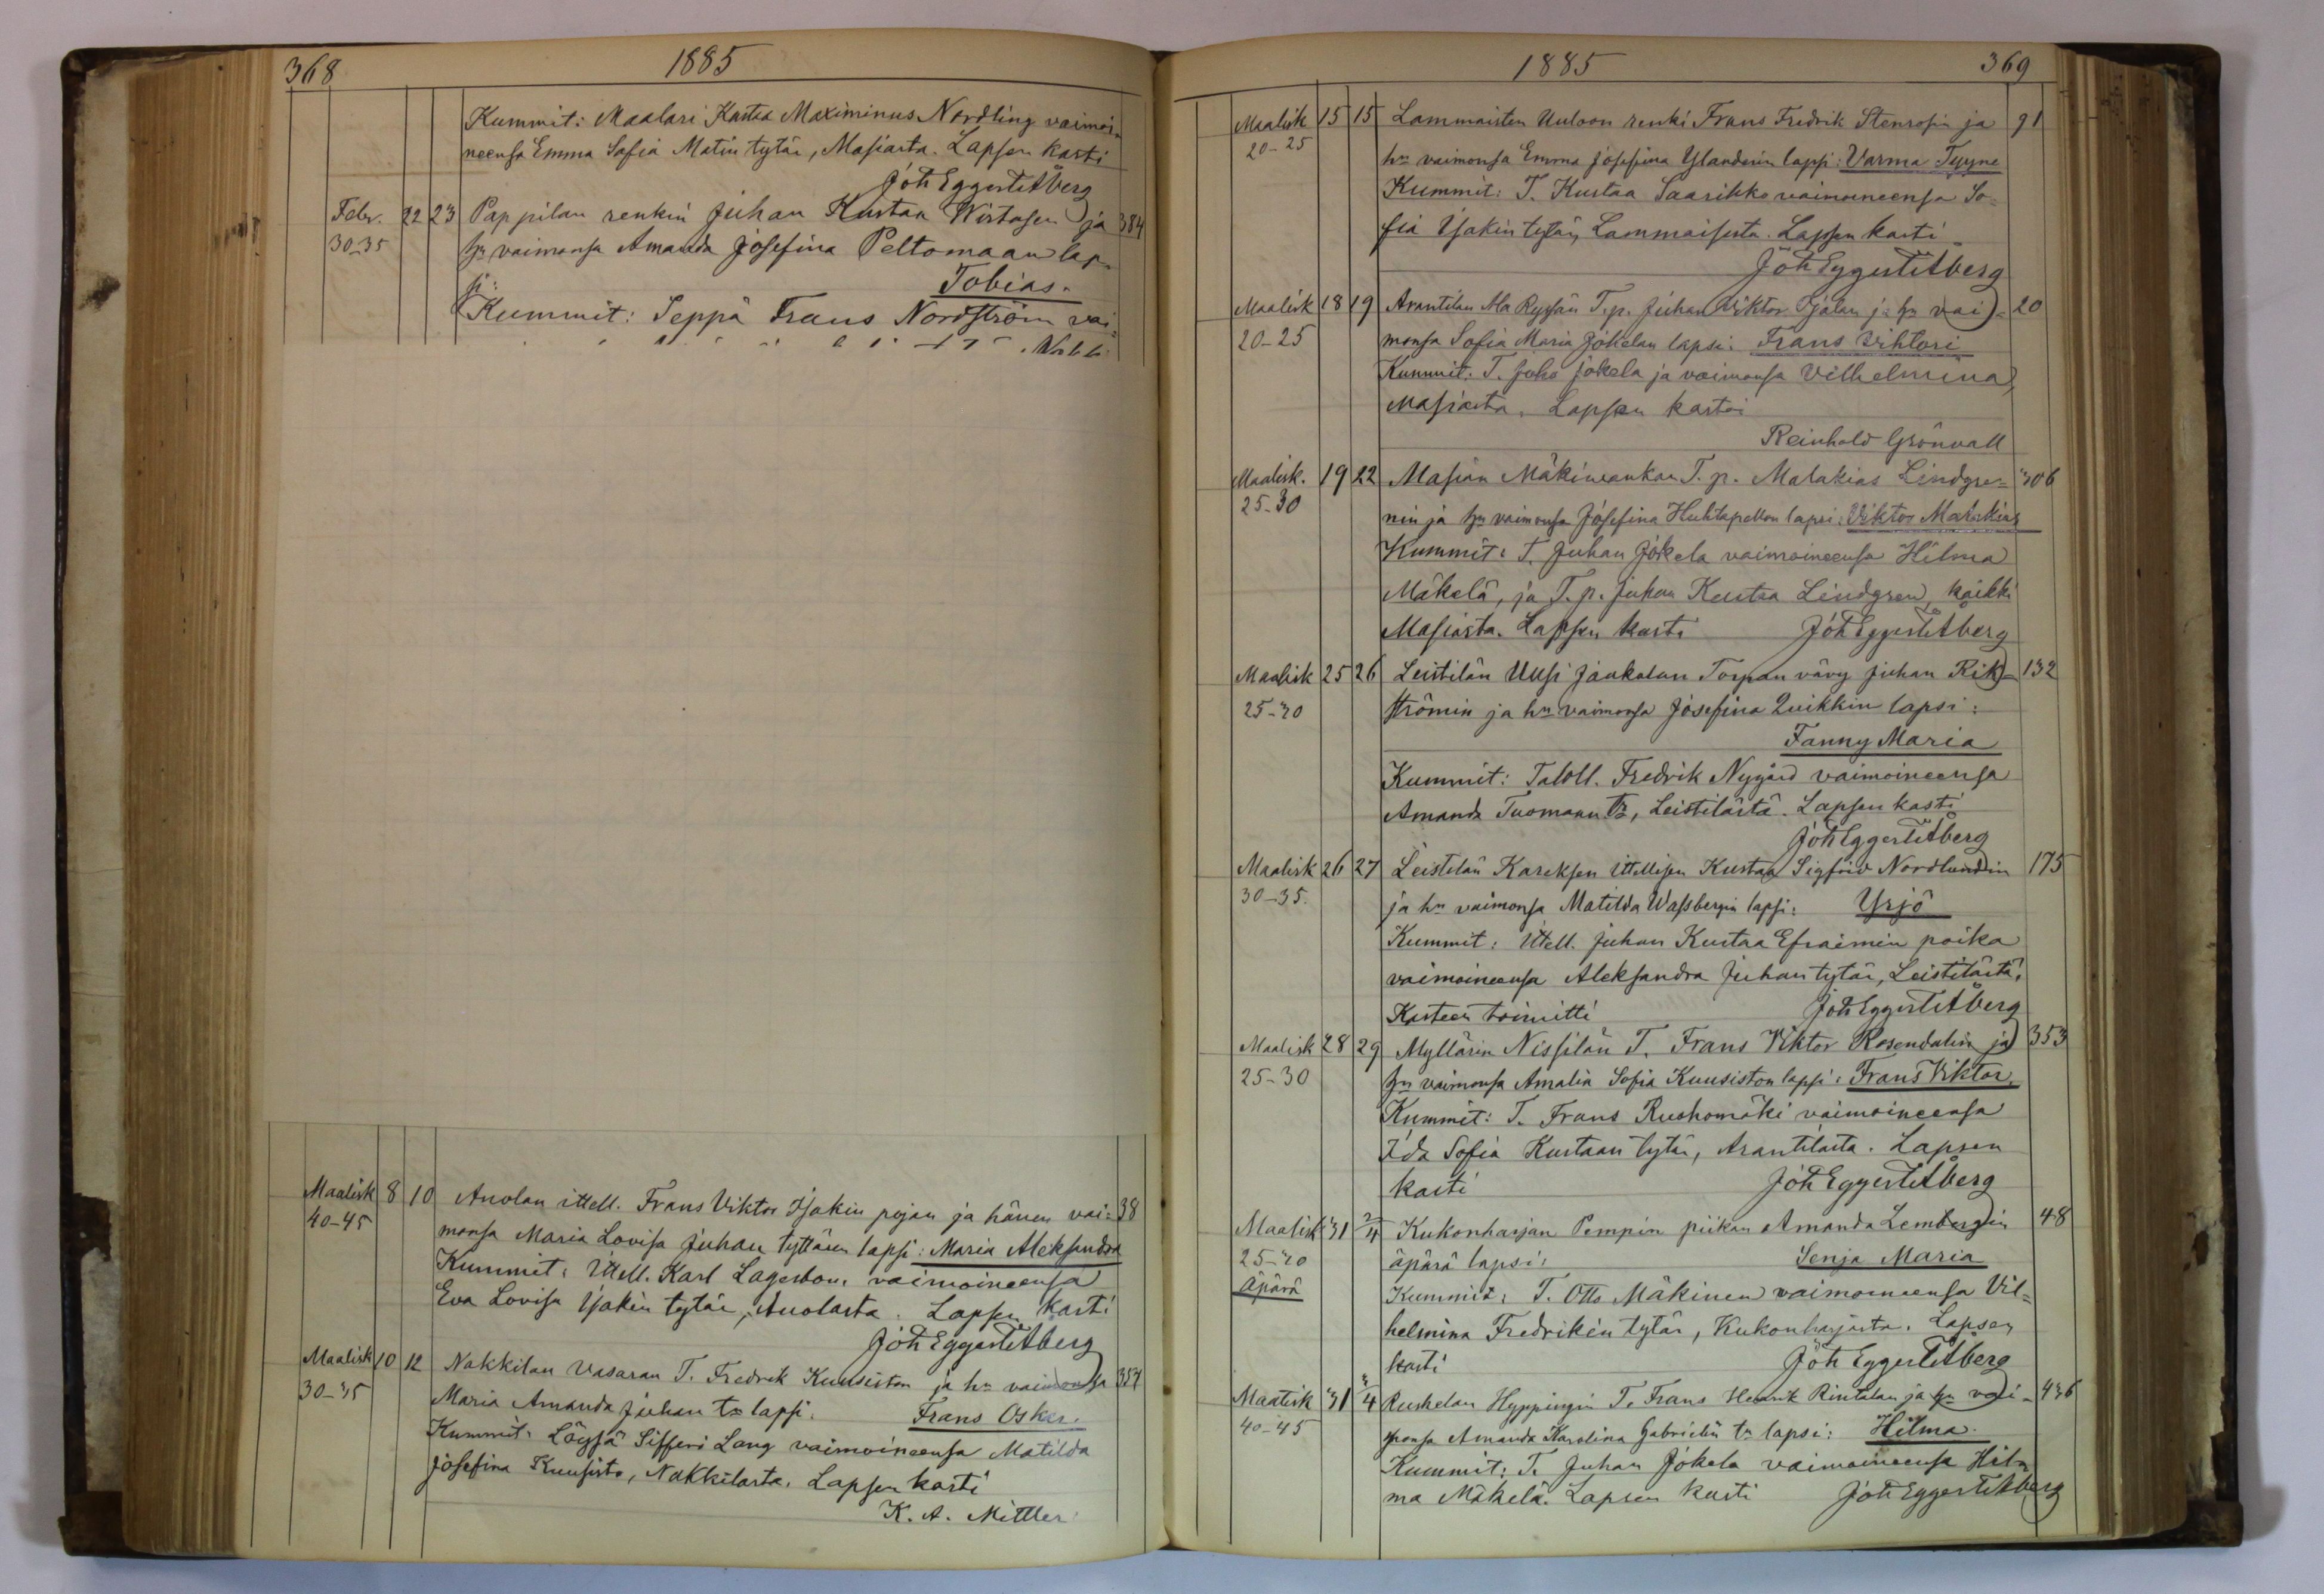 368
1885
Kummit: Maalari Kustaa Maximinus Nordling vaimoi=
neensa Emma Sofia Matin tytär, Masiasta. Lapsen kasti
Joh Eggert Åberg
Febr. 22 23 Pappilan renkin Juhan Kustaa Wirtasen ja 384
30-35 hn vaimonsa Amanda Josefina Peltomaan lap=
si: Tobias.
Kummit: Seppä Frans Nordström vai=
Maalisk 8 10 Anolan ittell. Frans Viktor Isakin pojan ja hänen vai= 38
40-45 monsa Maria Lovisa Juhan tyttären lapsi: Maria Aleksandra
Kummit: Ittell. Karl Lagerbom vaimoineensa
Eva Lovisa Isakin tytär, Anolasta. Lapsen kasti
Joh Eggert Åberg
Maalisk 10 12 Nakkilan Vasaran T. Fredrik Kuusiston ja hn vaimonsa 357
30-35 Maria Amanda Juhan tr lapsi: Frans Oskar.
Kummit: Löysä Sifferi Lang vaimoineensa Matilda
Josefina Kuusisto, Nakkilasta. Lapsen kasti
K. A. Mittler
1885
369
Maalisk 15 15 Lammaisten Uuloon renki Frans Fredrik Stenrosin ja 91
20-25 hn vaimonsa Emma Josefina Ylanderin lapsi: Varma Tyyne
Kummit: T. Kustaa Saarikko vaimoneensa So=
fia Isakin tytär, Lammaisista. Lapsen kasti
Joh Eggert Åberg
Maalisk 18 19 Arantilan Ala Ryssän T.p. Juhan Viktor Ojalan ja hn vai= 20
20-25 monsa Sofia Maria Jokelan lapsi: Frans Vihtori
Kummit: T. Juho Jokela ja vaimonsa Vilhelmina,
Masiasta. Lapsen kastoi
Reinhold Grönvall
Maalisk. 19 22 Masian Mäkiwankan T.p. Malakias Lindgre= 306
25-30 nin ja hn vaimonsa Josefina Huhtapellon lapsi: Viktor Malakias
Kummit: T. Juhan Jokela vaimoineensa Hilma
Mäkelä, ja T.p. Juhan Kustaa Lindgren, kaikki
Masiasta. Lapsen kasti Joh Eggert Åberg
Maalisk 25 26 Leistilän Uusi Jaakolan Torpan vävy Juhan Rik= 132
25-30 strömin ja hn vaimonsa Josefina Quikkin lapsi:
Fanny Maria
Kummit: Taloll. Fredrik Nygård vaimoineensa
Amanda Tuomaan tr, Leistilästä. Lapsen kasti
Joh Eggert Åberg
Maalisk 26 27 Leistilän Kareksen ittellisen Kustaa Sigfrid Nordlundin 175
30-35. ja hn vaimonsa Matilda Wassbergin lapsi: Yrjö
Kummit: Ittell. Juhan Kustaa Efraimin poika
vaimoineensa Aleksandra Juhan tytär, Leistilästä.
Kasteen toimitti Joh Eggert Åberg
Maalisk 28 29 Myllärin Nissilän T. Frans Viktor Rosendalin ja 353
25-30 hn vaimonsa Amalia Sofia Kuusiston lapsi: Frans Viktor.
Kummit: T. Frans Ruohomäki vaimoineensa
Ida Sofia Kustaan tytär, Arantilasta. Lapsen
kasti Joh Eggert Åberg
Maalisk 31 2/4 Kukonharjan Pempin piikan Amanda Lembergin 48
25-30 äpärä lapsi: Senja Maria
äpärä Kummit: T. Otto Mäkinen vaimoineensa Vil=
helmina Fredrikin tytär, Kukonharjasta. Lapsen
kasti Joh Eggert Åberg
Maalisk 31 3/4 Ruskelan Hyppingin T. Frans Henrik Rintalan ja hn vai= 436
40-45 monsa Amanda Karolina Gabrielin tr lapsi: Hilma.
Kummit: T. Juhan Jokela vaimoineensa Hil=
ma Mäkelä. Lapsen kasti Joh Eggert Åberg